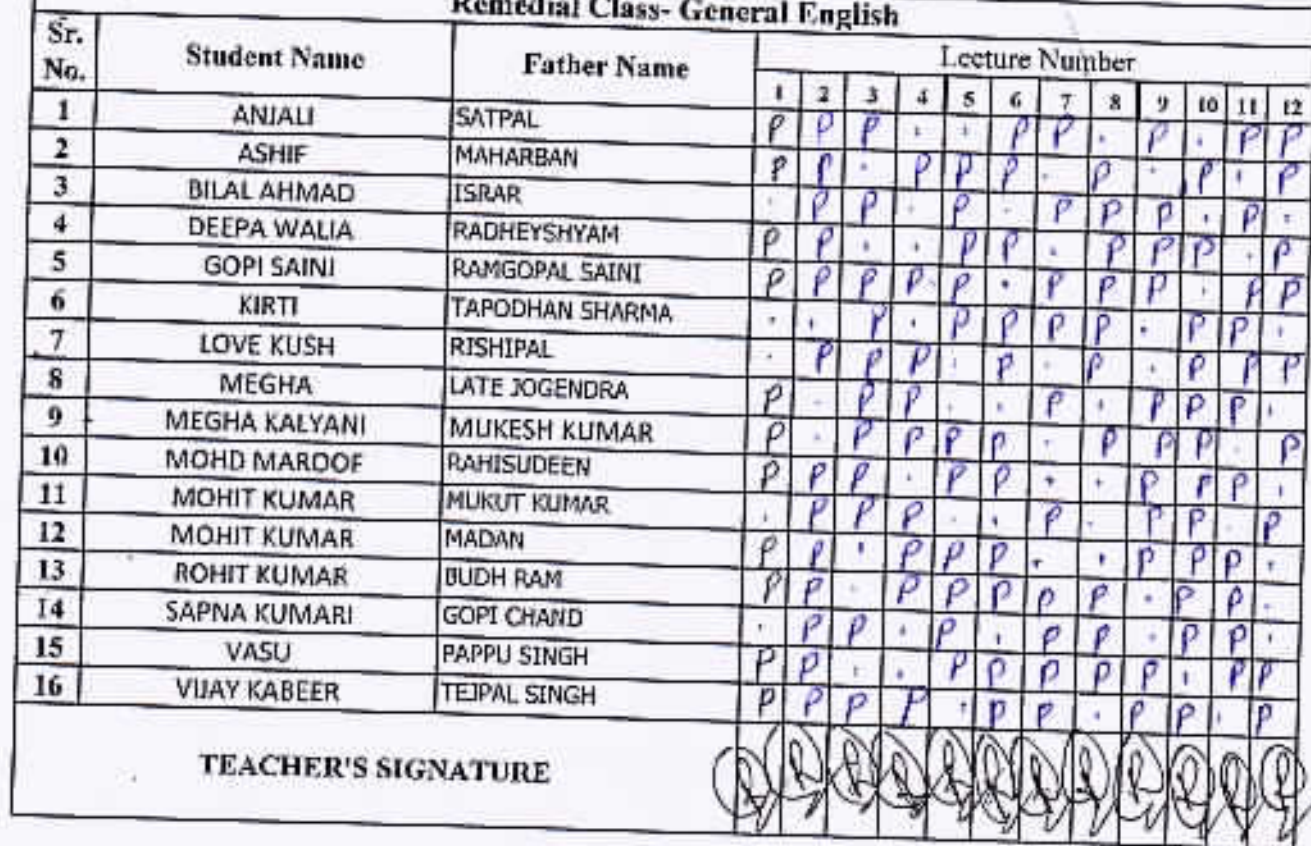 Remedial Class- General English
Sr. No. Student Name Father Name Lecture Number
1 2 3 4 5 6 7 8 9 10 11 12
1 ANJALI SATPAL P P P . . P P . P . P P
2 ASHIF MAHARBAN P P . P P P . P . P . P
3 BILAL AHMAD ISRAR . P P . P . P P P . P .
4 DEEPA WALIA RADHEYSHYAM P P . . P P . P P P . P
5 GOPI SAINI RAMGOPAL SAINI P P P P P . P P P . P P
6 KIRTI TAPODHAN SHARMA . . P . P P P P . P P .
7 LOVE KUSH RISHIPAL . P P P . P . P . P P P
8 MEGHA LATE JOGENDRA P . P P . . P . P P P .
9 MEGHA KALYANI MUKESH KUMAR P . P P P P . P P P . P
10 MOHD MAROOF RAHISUDEEN P P P . P P . . P P P .
11 MOHIT KUMAR MUKUT KUMAR . P P P . . P . P P . P
12 MOHIT KUMAR MADAN P P . P P P . . P P P .
13 ROHIT KUMAR BUDH RAM P P . P P P P P . P P .
14 SAPNA KUMARI GOPI CHAND . P P . P . P P . P P .
15 VASU PAPPU SINGH P P . . P P P P P . P P
16 VIJAY KABEER TEJPAL SINGH P P P P . P P . P P . P
TEACHER'S SIGNATURE